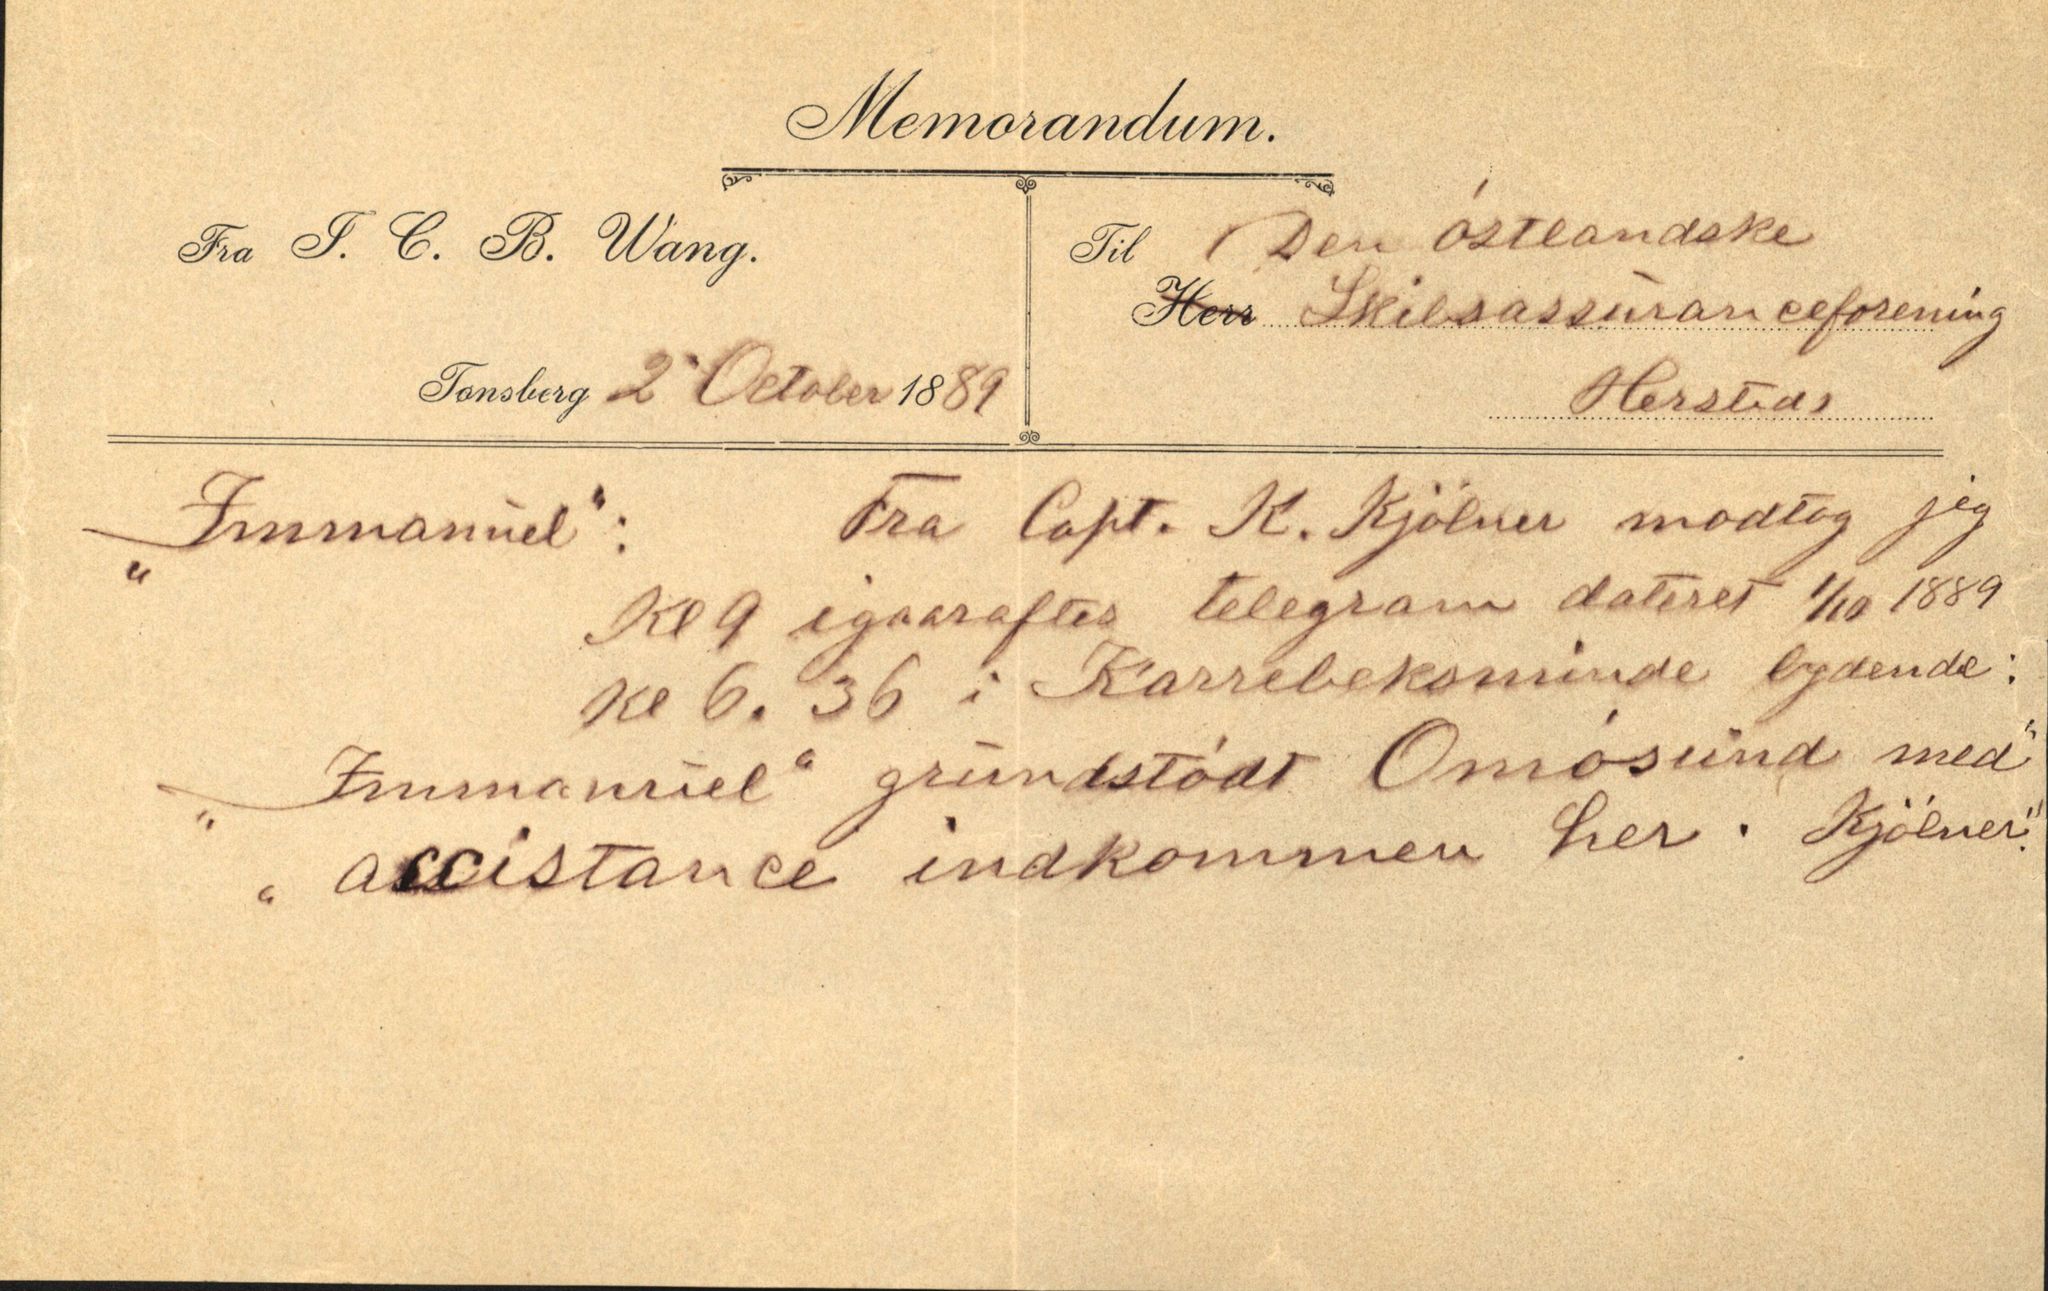 Memorandum.
Fra J. C. B. Wang.
Tønsberg 2 October 1889
Til Den óstlandske
Herr Skibsassuranceforening
Hersteds
„Immanuel“: Fra Capt. K. Kjölner modtog jeg
Kl 9 igaaraftes telegram dateret 1/10 1889
Kl 6. 36 i Karrebeksminde lydende:
„Immanuel“ grundstódt Omósund med“
„ accistance indkommen her. Kjölner“.